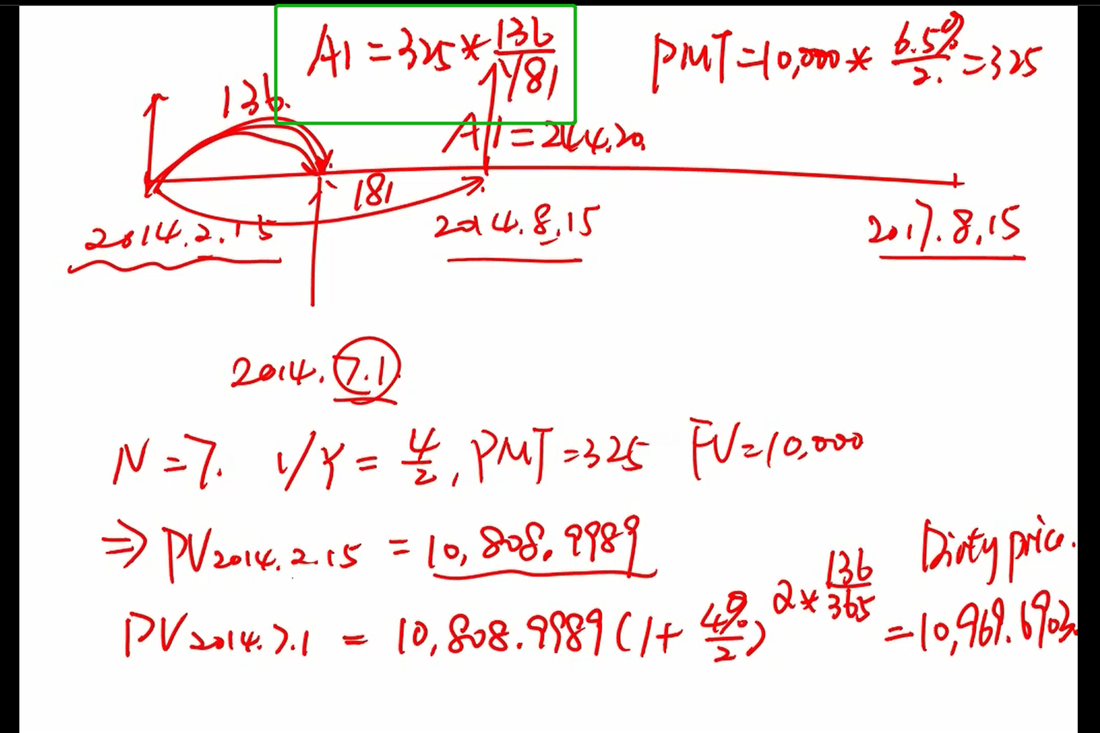 AI = 325 * 136/181
PMT = 10,000 * 6.5%/2. = 325
136.
AI = 244.20.
181
2014.2.15
2014.8.15
2017.8.15
2014.7.1
N = 7. I/Y = 4/2, PMT = 325 FV = 10,000
⇒ PV2014.2.15 = 10,808.9989
Dirty price.
PV2014.7.1 = 10,808.9989(1 + 4%/2)^2*136/365 = 10,969.6903.